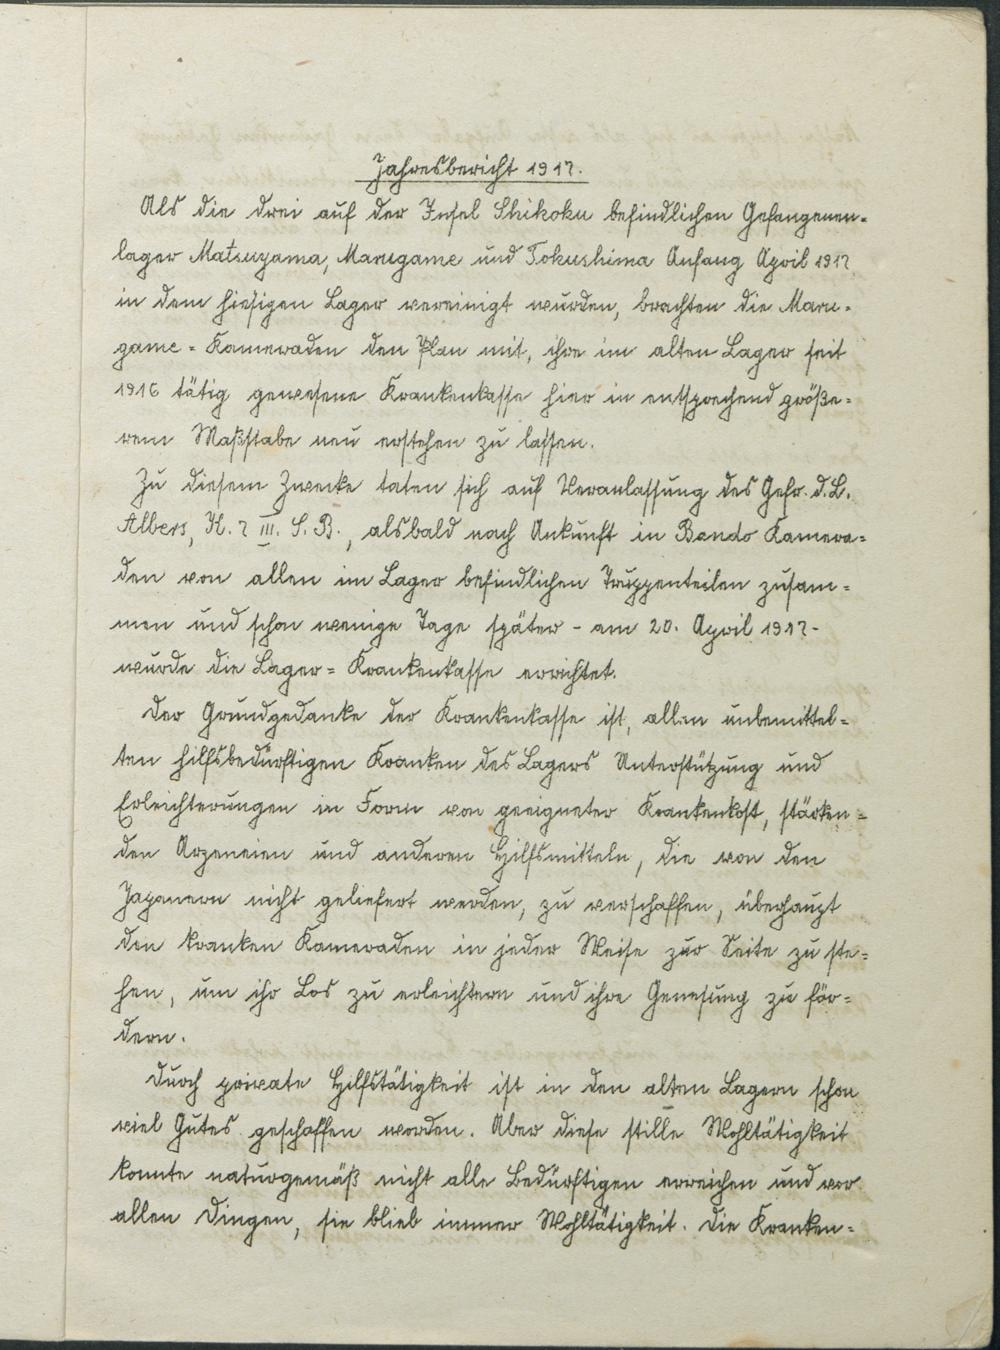 Jahresbericht 1917.
Als die drei auf der Insel Shikoku befindlichen Gefangenen-
lager Matsuyama, Marugame und Tokushima Anfang April 1917
in dem hiesigen Lager vereinigt wurden, brachten die Maru-
game-Kameraden den Plan mit, ihre im alten Lager seit
1916 tätig gewesene Krankenkasse hier in entsprechend größe-
rem Maßstabe neu erstehen zu lassen.
Zu diesem Zwecke taten sich auf Veranlassung des Gefr. d.L.
Albers, K. 7 III. S.B., alsbald nach Ankunft in Bando Kamera-
den von allen im Lager befindlichen Truppenteilen zusam-
men und schon wenige Tage später - am 20. April 1917-
wurde die Lager-Krankenkasse errichtet.
Der Grundgedanke der Krankenkasse ist, allen unbemittel-
ten hilfsbedürftigen Kranken des Lagers Unterstützung und
Erleichterungen in Form von geeigneter Krankenkost, stärken-
den Arzeneien und anderen Hilfsmitteln, die von den
Japanern nicht geliefert werden, zu verschaffen, überhaupt
den kranken Kameraden in jeder Weise zur Seite zu ste-
hen, um ihr Los zu erleichtern und ihre Genesung zu för-
dern.
Durch private Hilfstätigkeit ist in den alten Lagern schon
viel Gutes geschaffen worden. Aber diese stille Wohltätigkeit
konnte naturgemäß nicht alle Bedürftigen erreichen und vor
allen Dingen, sie blieb immer Wohltätigkeit. Die Kranken-